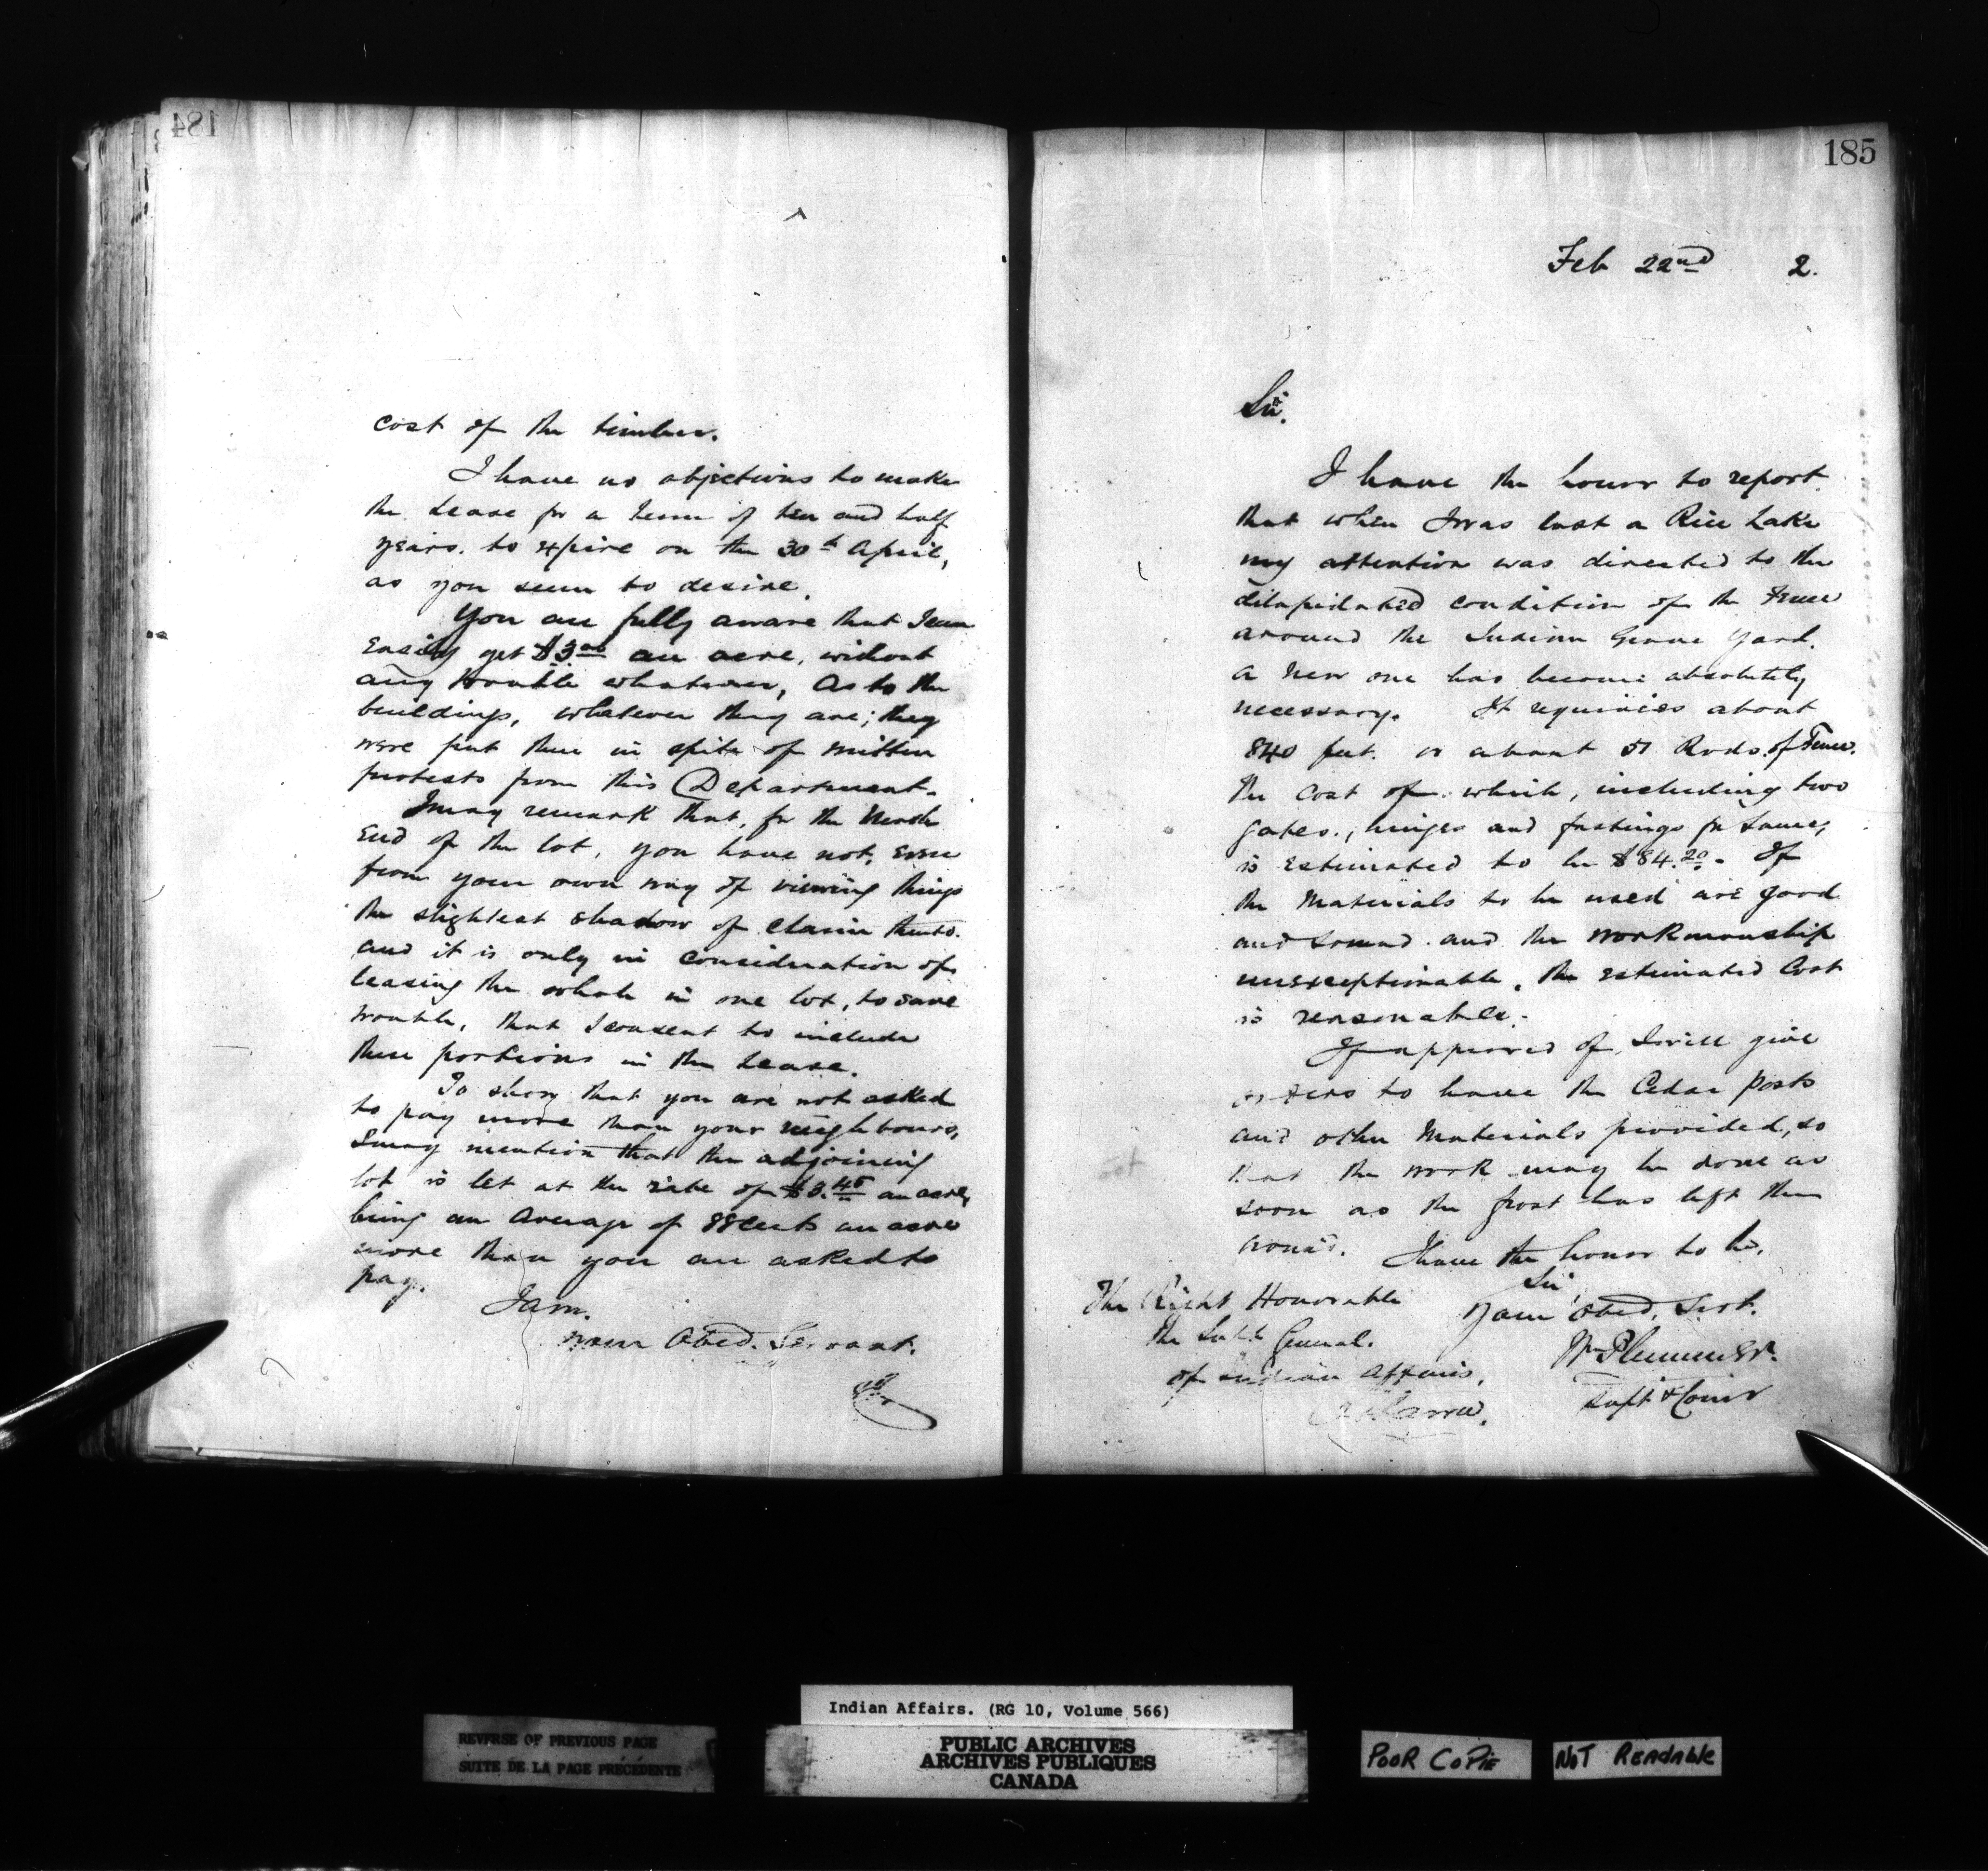 184
cost of the timber.
I have no objections to make
the Lease for a term of ten and half
years. to expire on the 30th April,
as you seem to desire.
You are fully aware that I can
easily get $3.00 an acre, without
any trouble whatever, As to the
buildings, whatever they are; they
were put there in spite of written
protests from this Department.
I may remark that, for the North
end of the lot, you have not, even
from your own way of viewing things
the slightest shadow of claim thereto.
and it is only in consideration of
leasing the whole in one lot, to save
trouble, that I consent to include
these portions in the Lease.
To show that you are not asked
to pay more than your neighbours,
I may mention that the adjoining
lot is let at the rate of $3.45 an acre,
being an average of 88 cents an acre
more than you are asked to
pay.
I am.
Your Obed. Servant.
185
Feb 22nd 2.
Sir.
I have the honor to report
that when I was last a Rice Lake
my attention was directed to the
dilapidated condition of the Fence
around the Indian Grave Yard.
A new one has become absolutely
necessary. It requires about
840 feet. or about 51 Rods. of Fence.
The cost of which, including two
gates., hinges and fastings for same,
is estimated to be $84.20. If
the Materials to be used are good
and sound and the workmanship
unexceptionable, the estimated Cost
is reasonable.
If approved of, I will give
orders to have the Cedar posts
and other Materials provided, so
that the work may be done as
soon as the frost has left the
ground.
I have the honor to be,
Sir,
Your Obed. Servt.
Wm Plummer.
Supt & Comr
The Right Honorable
the Supt General.
of Indian Affairs,
Ottawa.
Indian Affairs. (RG 10, Volume 566)
REVERSE OF PREVIOUS PAGE
SUITE DE LA PAGE PRÉCÉDENTE
PUBLIC ARCHIVES
ARCHIVES PUBLIQUES
CANADA
POOR COPIE
NOT READABLE